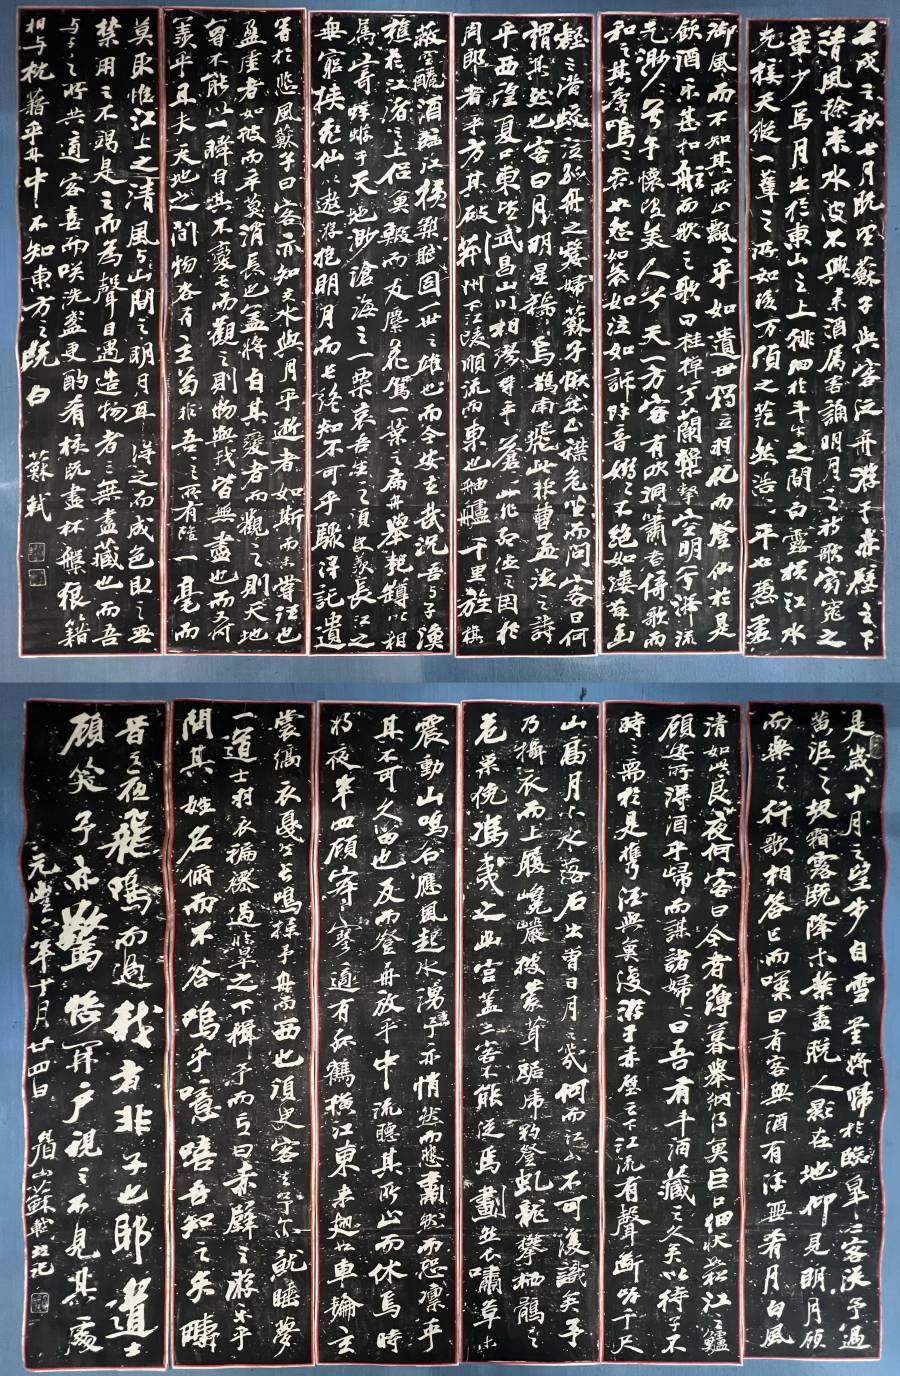 壬戌之秋七月既望蘇子與客泛舟游于赤壁之下
清風徐來水波不興舉酒属客誦明月之詩歌窈窕之
章少焉月出於東山之上徘徊於斗牛之間白露横江水
光接天縱一葦之所如淩万頃之茫然浩浩乎如憑虚
御風而不知其所止飄飄乎如遺世獨立羽化而登仙於是
飲酒樂甚扣舷而歌之歌曰桂棹兮蘭槳擊空明兮泝流
光渺渺兮予懷望美人兮天一方客有吹洞簫者倚歌而
和之其聲嗚嗚然如怨如慕如泣如訴餘音嫋嫋不絕如縷舞幽
壑之潛蛟泣孤舟之嫠婦蘇子愀然正襟危坐而問客曰何
謂其然也客曰月明星稀烏鵲南飛此非曹孟德之詩
乎西望夏口東望武昌山川相繆鬱乎蒼蒼此非孟德之困於
周郎者乎方其破荊州下江陵順流而東也舳艫千里旌旗
蔽空釃酒臨江横槊賦詩固一世之雄也而今安在哉況吾与子漁
樵於江渚之上侶魚蝦而友麋鹿駕一葉之扁舟舉匏罇以相
属寄蜉蝣于天地渺滄海之一粟哀吾生之須臾羡長江之
無窮挾飛仙以遨游抱明月而長終知不可乎驟得託遺
響於悲風蘇子曰客亦知夫水與月乎逝者如斯而未嘗往也
盈虚者如彼而卒莫消長也盖將自其變者而觀之則天地
曾不能以一瞬自其不變者而觀之則物與我皆無盡也而又何
羡乎且夫天地之間物各有主苟非吾之所有雖一毫而
莫取惟江上之清風与山間之明月耳得之而成色取之無
禁用之不竭是之而為聲目遇造物者之無盡藏也而吾
与子之所共適客喜而笑洗盞更酌肴核既盡杯盤狼籍
相与枕藉乎舟中不知東方之既白 蘇軾
是歲十月之望步自雪堂將歸於臨皋二客從予過
黄泥之坂霜露既降木葉盡脱人影在地仰見明月顧
而樂之行歌相答已而嘆曰有客無酒有酒無肴月白風
清如此良夜何客曰今者薄暮舉網得魚巨口細鱗狀如松江之鱸
顧安所得酒乎歸而謀諸婦婦曰吾有斗酒藏之久矣以待子不
時之需於是攜酒與魚復游于赤壁之下江流有聲斷岸千尺
山高月小水落石出曾日月之幾何而江山不可復識矣予
乃攝衣而上履巉巖披蒙茸踞虎豹登虬龍攀栖鶻之
危巢俯馮夷之幽宫蓋二客不能從焉劃然長嘯草木
震動山鳴谷應風起水涌予亦悄然而悲肅然而恐凜乎
其不可久留也反而登舟放乎中流聽其所止而休焉時
將夜半四顧寂寥適有孤鶴横江東來翅如車輪玄
裳縞衣戛然長鳴掠予舟而西也須臾客去予亦就睡夢
一道士羽衣褊褼過臨皋之下揖予而言曰赤壁之游樂乎
問其姓名俯而不答嗚呼噫嘻我知之矣疇
昔之夜飛鳴而過我者非子也耶道士
顧笑予亦驚悟開户視之不見其處
元豐六年十月廿四日 眉山蘇軾